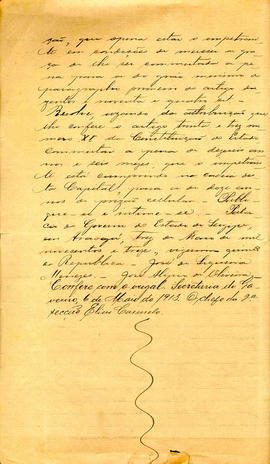 zão, que opina estar o impetran
te em condições de merecer a gra
ça de lhe ser commutada a pe
na para a do gráo minimo do
paragrapho primeiro do artigo du
zentos e noventa e quatro
Resolve, usando da attribuição que
lhe confere o artigo trinta e tres nu
mero XX da Constituição do Estado
Commutar a pena de dezeseis an
nos e seis mezes, que o impetran
te está cumprindo na cadeia des
ta Capital, para a de doze an
nos de prizão cellular. Publi
que-se e intime-se. Pala
cio do Governo do Estado de Sergipe
em Aracajú, tres de Maio de mil
novecentos e treze, vigesimo quinto
da Republica. José de Siqueira
Menezes.
Confere com o original. Secretaria do Go
verno, 6 de Maio de 1913. O chefe da 2ª
secção